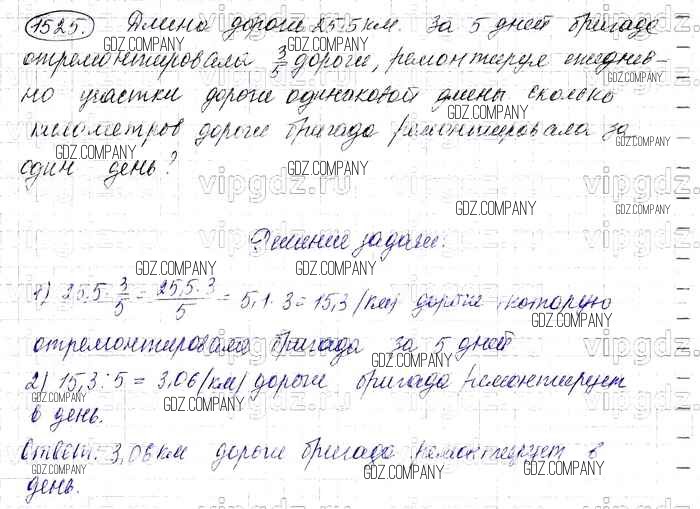 1525. Длина дороги 25.5 км. За 5 дней бригада
отремонтировала 3/5 дороги, ремонтируя ежеднев-
но участки дороги одинаковой длины сколько
километров дороги бригада ремонтировала за
один день?
Решение задачи.
1) 25.5 · 3/5 = 25,5·3/5 = 5,1·3 = 15,3 (км) дороги, которую
отремонтировала бригада за 5 дней
2) 15,3 : 5 = 3,06 (км) дороги бригада ремонтирует
в день.
Ответ: 3,06 км дороги бригада ремонтирует в
день.
GDZ.COMPANY
vipgdz.ru